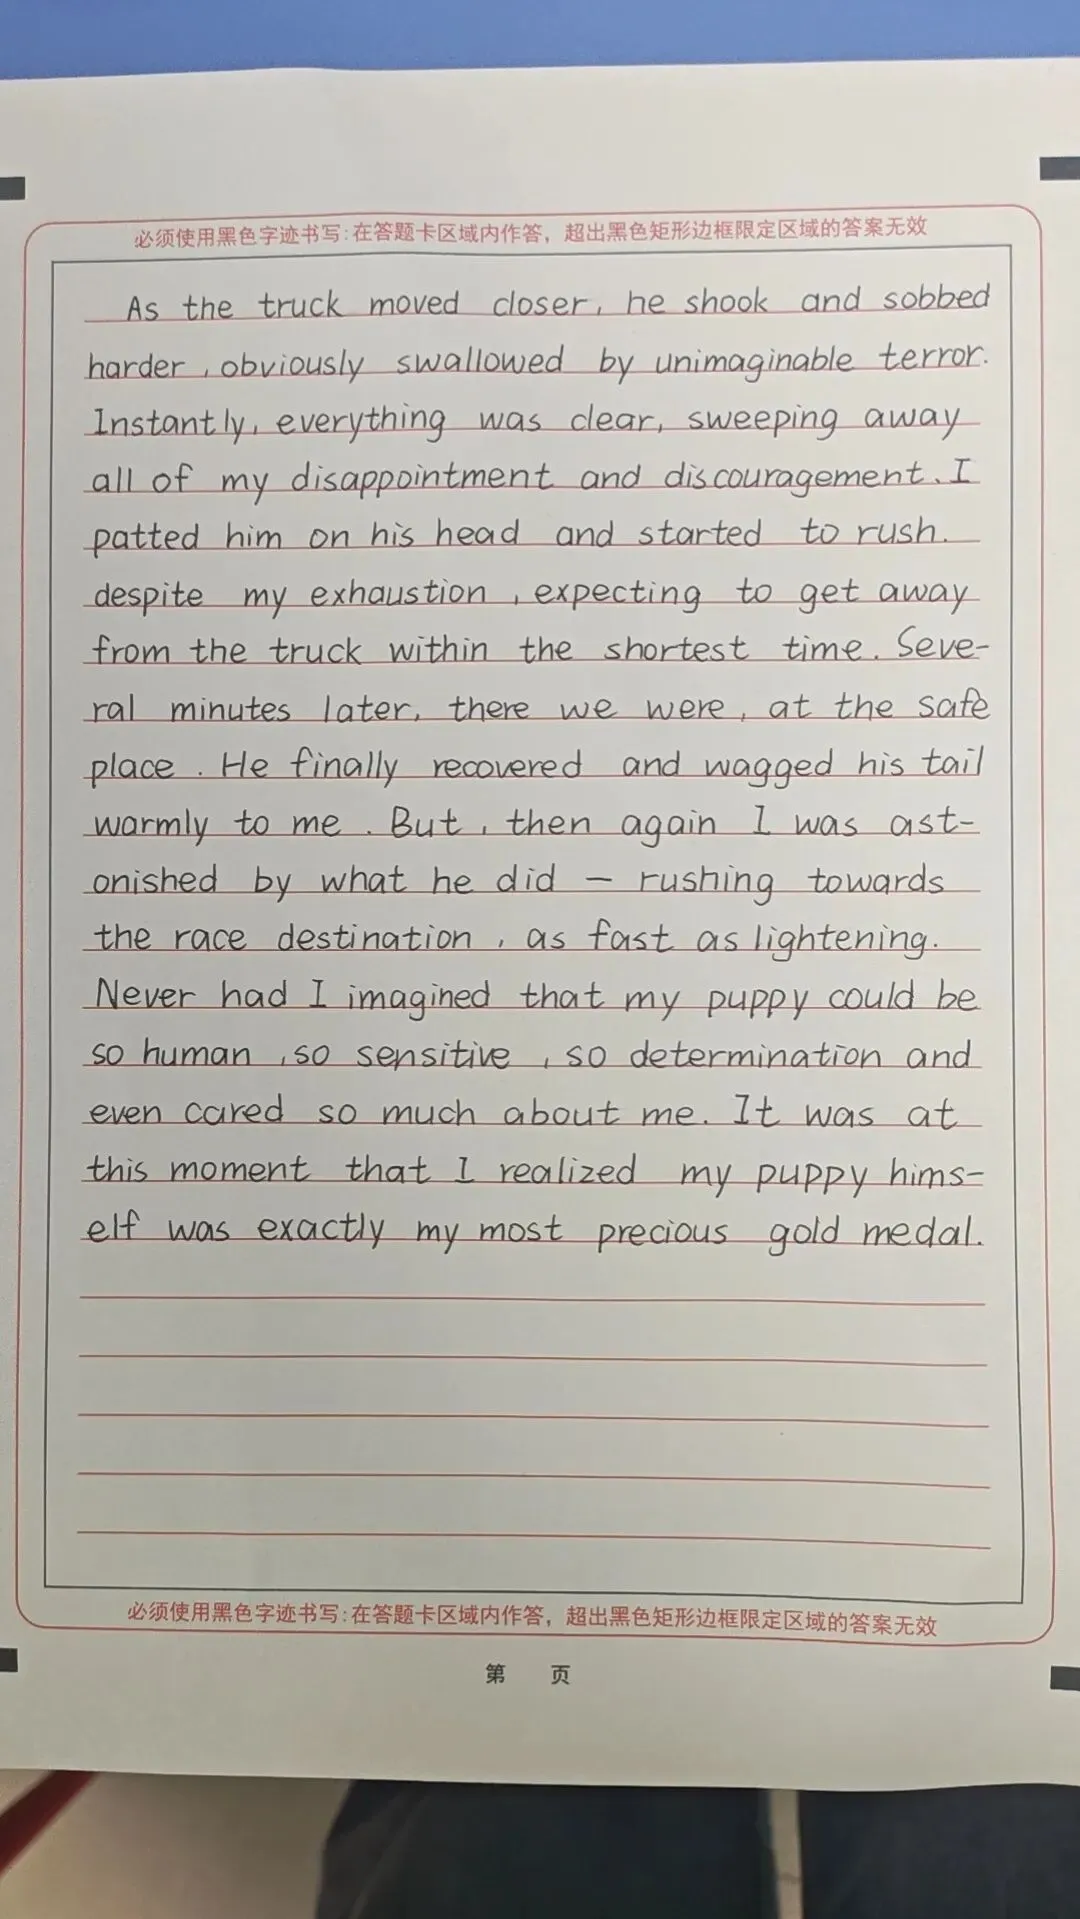 必须使用黑色字迹书写:在答题卡区域内作答，超出黑色矩形边框限定区域的答案无效
As the truck moved closer, he shook and sobbed
harder, obviously swallowed by unimaginable terror.
Instantly, everything was clear, sweeping away
all of my disappointment and discouragement. I
patted him on his head and started to rush.
despite my exhaustion, expecting to get away
from the truck within the shortest time. Seve-
ral minutes later, there we were, at the safe
place. He finally recovered and wagged his tail
warmly to me. But, then again I was ast-
onished by what he did — rushing towards
the race destination, as fast as lightening.
Never had I imagined that my puppy could be
so human, so sensitive, so determination and
even cared so much about me. It was at
this moment that I realized my puppy hims-
elf was exactly my most precious gold medal.
必须使用黑色字迹书写:在答题卡区域内作答，超出黑色矩形边框限定区域的答案无效
第 页